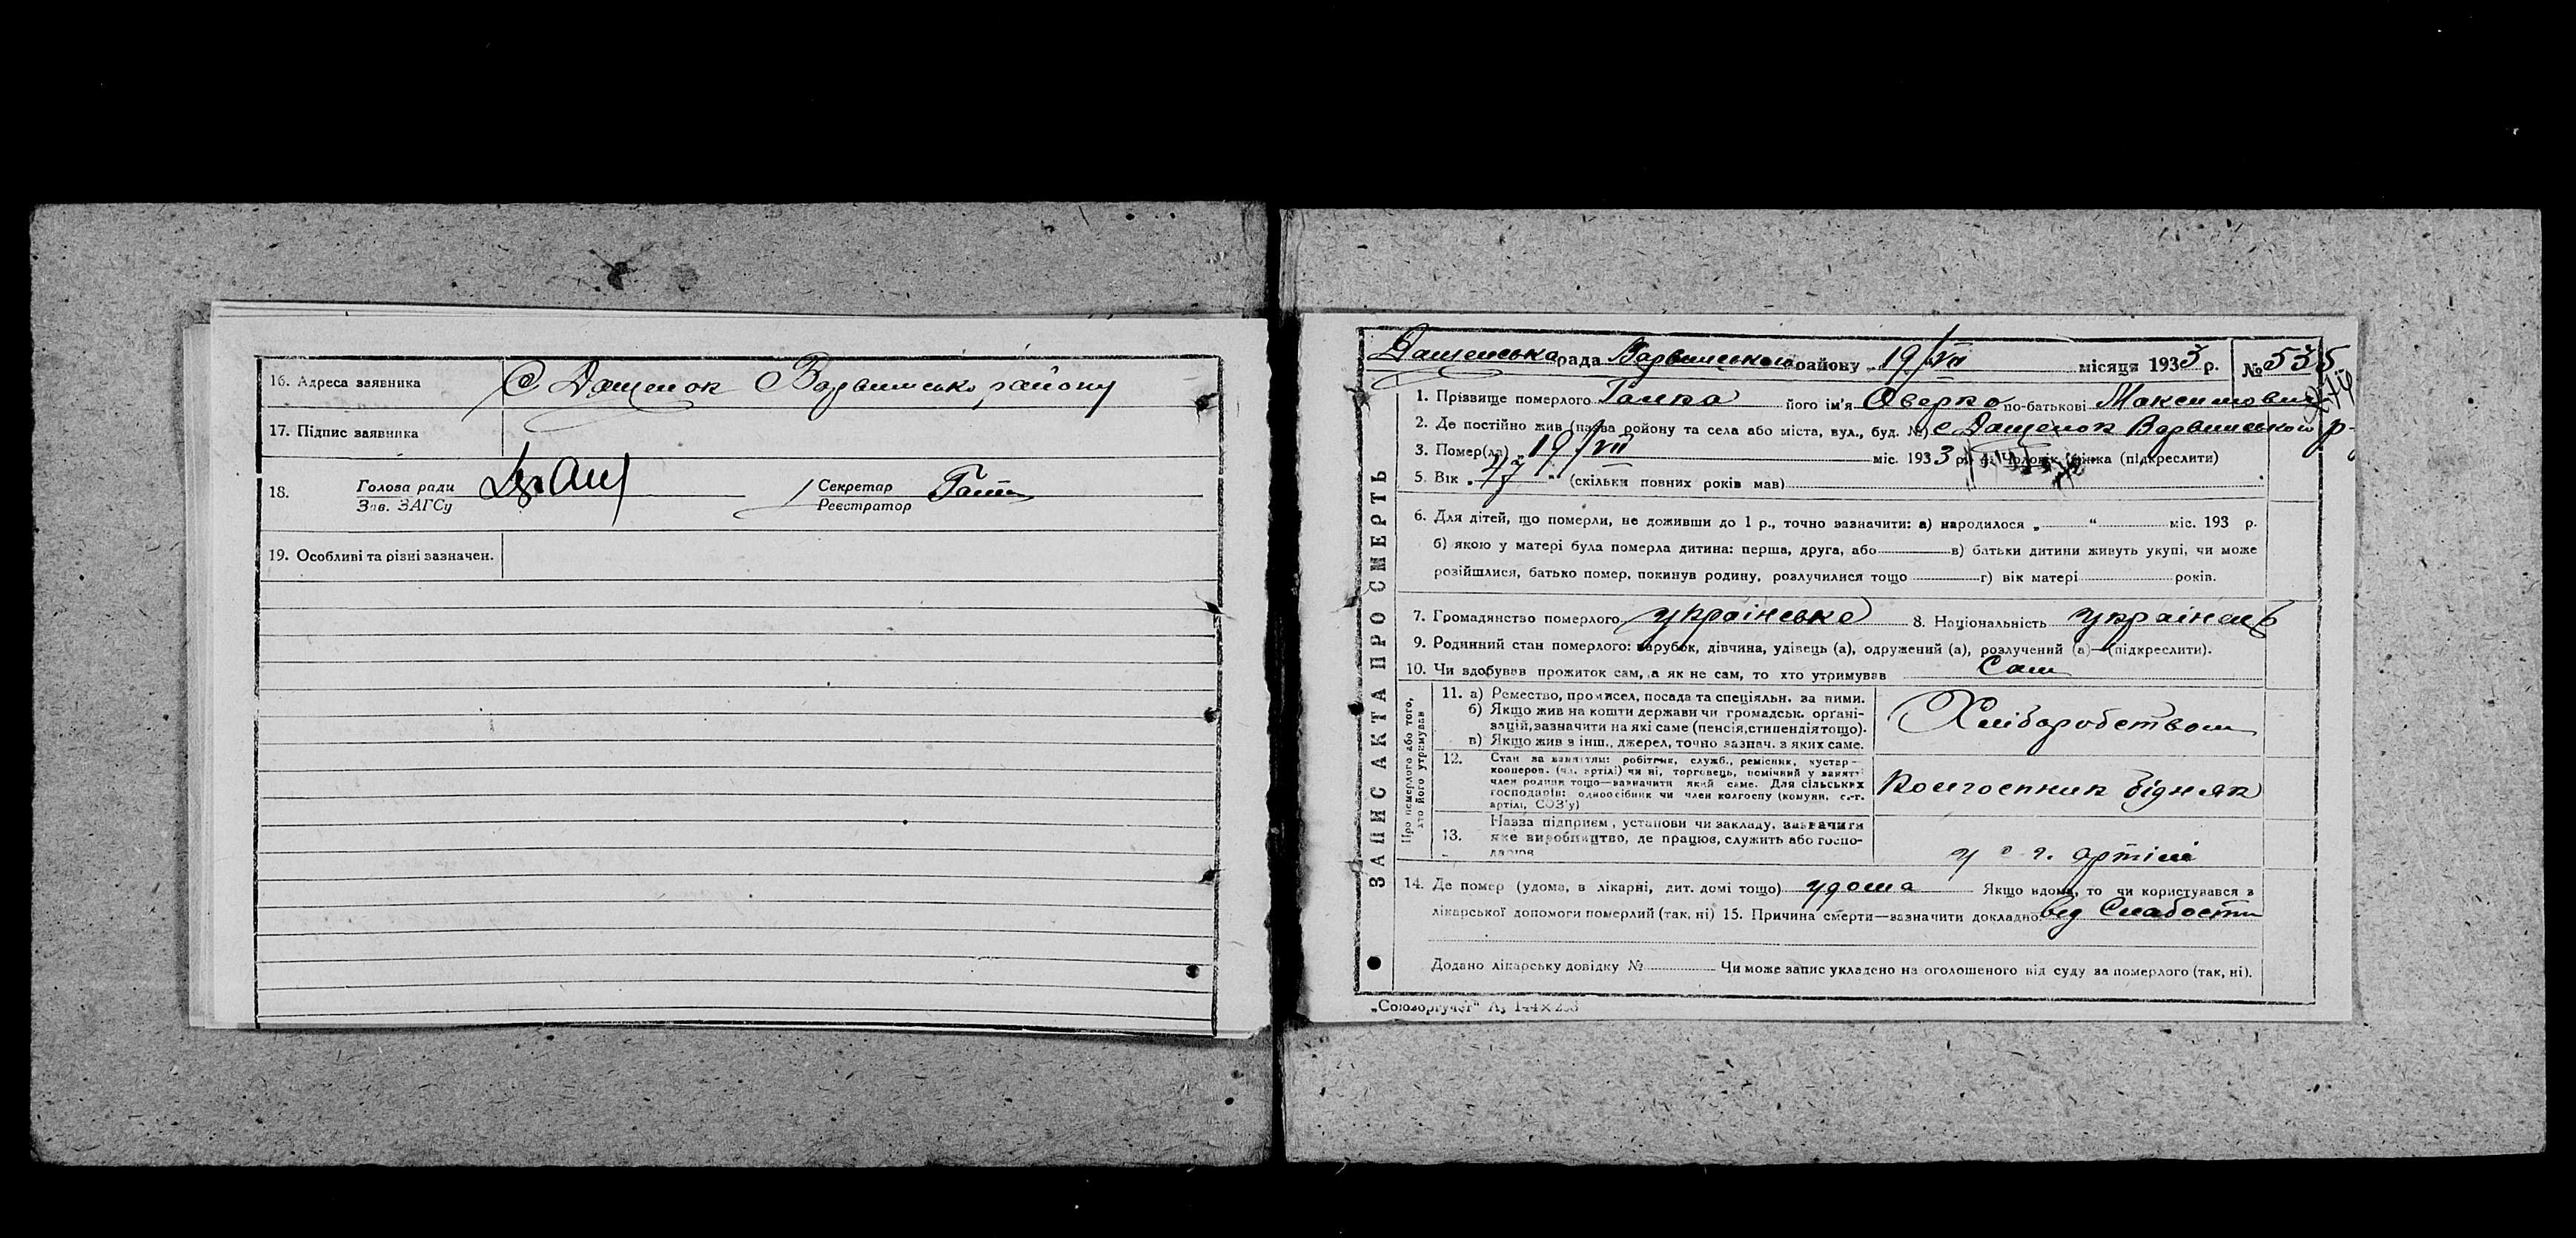 16. Адреса заявника С Дащенок Варвинсько району
17. Підпис заявника
18. Голова ради Зав. ЗАГСу Секретар Реєстратор
19. Особливі та різні зазначен.
ЗАПИС АКТА ПРО СМЕРТЬ
Дащенська рада Варвинського району „19/VII місяця 1933 р. № 535
1. Прізвище померлого Галка його ім'я Оверко по-батькові Максимович
2. Де постійно жив (назва району та села або міста, вул., буд. №) с Дащенок Варвинського р-
3. Помер(ла) „19/VII міс. 1933 р. 4. Чоловік, жінка (підкреслити)
5. Вік „47" (скільки повних років мав)
6. Для дітей, що померли, не доживши до 1 р., точно зазначити: а) народилося „ “ міс. 193 р.
б) якою у матері була померла дитина: перша, друга, або в) батьки дитини живуть укупі, чи може
розійшлися, батько помер, покинув родину, розлучилися тощо г) вік матері років.
7. Громадянство померлого українське 8. Національність українець
9. Родинний стан померлого: парубок, дівчина, удівець (а), одружений (а), розлучений (а)—(підкреслити).
10. Чи здобував прожиток сам, а як не сам, то хто утримував Сам
Про померлого або того, хто його утримував
11. а) Ремество, промисел, посада та спеціяльн. за ними.
б) Якщо жив на кошти держави чи громадськ. органі-
зацій, зазначити на які саме (пенсія, стипендія тощо).
в) Якщо жив з інш., джерел, точно зазнач. з яких саме.
Хліборобством
12. Стан за заняттям: робітник, служб., ремісник, кустар—
кооперов. (чл. артілі) чи ні, торговець, помічний у занятті
член родини тощо—зазначити який саме. Для сільських
господарів: одноосібник чи член колгоспу (комуни, с.-г.
артілі, СОЗ'у)
Колгоспник бідняк
13. Назва підприєм, установи чи закладу, зазначити
яке виробництво, де працює, служить або госпо-
дарює
у с г. артілі
14. Де помер (удома, в лікарні, дит. домі тощо) удома Якщо вдома, то чи користувався з
лікарської допомоги померлий (так, ні) 15. Причина смерти—зазначити докладно від Слабости
Додано лікарську довідку № Чи може запис укладено на оголошеного від суду за померлого (так, ні).
„Союзоргучет“